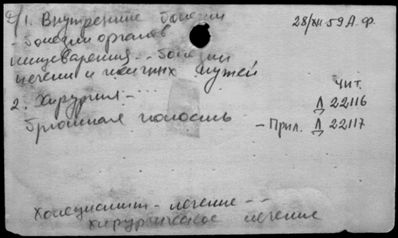 1. Внутренние болезни
28/XII 59 А.Ф.
- болезни органов
пищеварения - - болезни
печени и желчных путей
Чит.
2. Хирургия - ···
Л 22116
брюшная полость
- Прил. Л 22117
Холецистит - лечение - -
хирургическое лечение